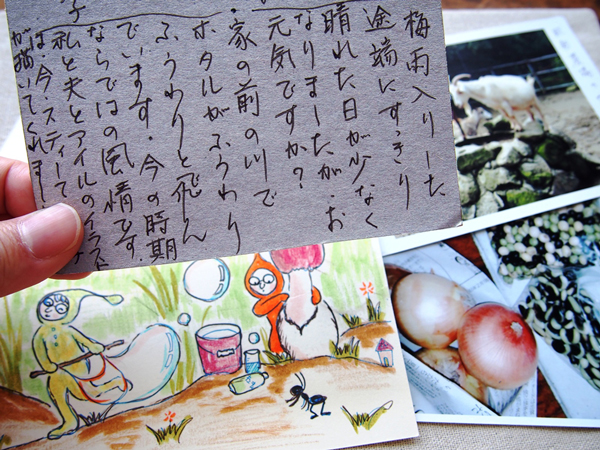 梅雨入りした
途端にすっきり
晴れた日が少なく
なりましたが、お
元気ですか?
・家の前の川で
ホタルがふうわり
ふうわりと飛ん
でいます。今の時期
ならではの風情です
私と夫とアイルのイラスト
は、今スティーて
が描いてくれまし